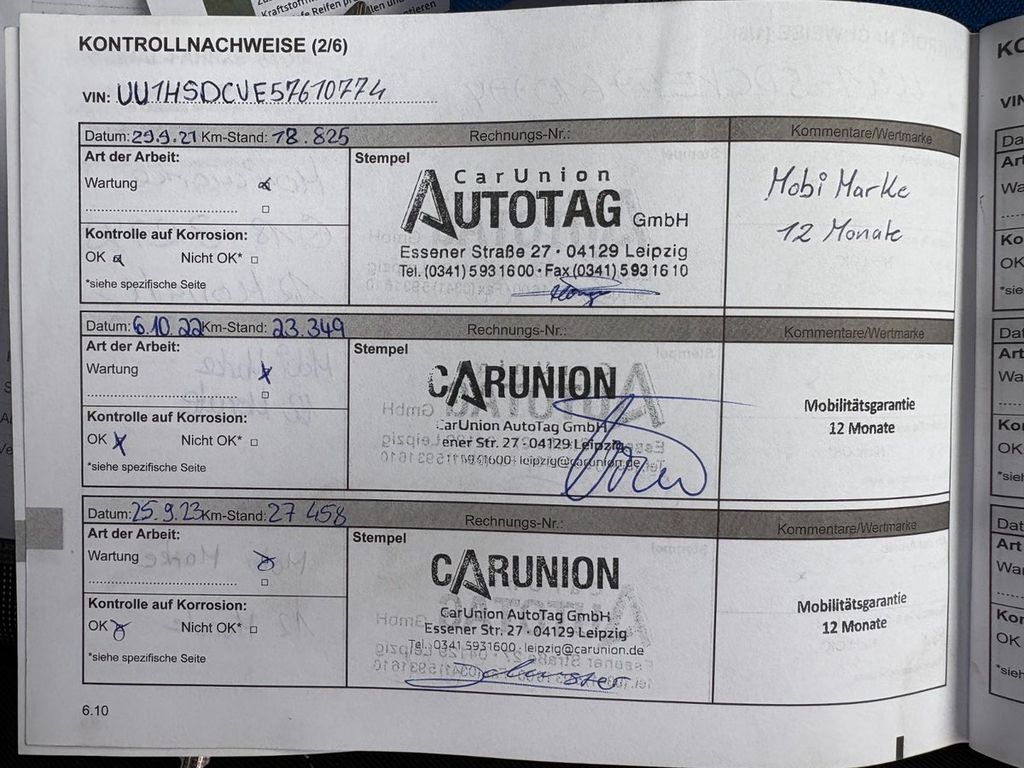 Kraftstoffe
Reifen
KONTROLLNACHWEISE (2/6)
VIN: UU1HSDCVE57610774
Datum: 29.9.21 Km-Stand: 18.825 Rechnungs-Nr.: Kommentare/Wertmarke
Art der Arbeit:
Wartung
Kontrolle auf Korrosion:
OK Nicht OK*
*siehe spezifische Seite
Stempel
CarUnion
AUTOTAG GmbH
Essener Straße 27 · 04129 Leipzig
Tel. (0341) 5 93 16 00 · Fax (0341) 5 93 16 10
Mobi Marke
12 Monate
Datum: 6.10.22 Km-Stand: 23.349 Rechnungs-Nr.: Kommentare/Wertmarke
Art der Arbeit:
Wartung
Kontrolle auf Korrosion:
OK Nicht OK*
*siehe spezifische Seite
Stempel
CARUNION
CarUnion AutoTag GmbH
ener Str. 27 · 04129 Leipzig
leipzig@carunion.de
Mobilitätsgarantie
12 Monate
Datum: 25.9.23 Km-Stand: 27 458 Rechnungs-Nr.: Kommentare/Wertmarke
Art der Arbeit:
Wartung
Kontrolle auf Korrosion:
OK Nicht OK*
*siehe spezifische Seite
Stempel
CARUNION
CarUnion AutoTag GmbH
Essener Str. 27 · 04129 Leipzig
Tel. 0341 5931600 · leipzig@carunion.de
Mobilitätsgarantie
12 Monate
6.10